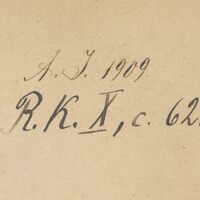 A. J. 1909.
R. K. X, c. 62.